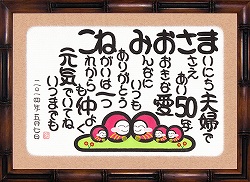 まいにち夫婦で
ささえあい50年
おおきな愛
みんなにいつも
ありがとう
ねがいは一つ
これからも仲よく
元気でいてね
いつまでも
二〇一四年五月七日